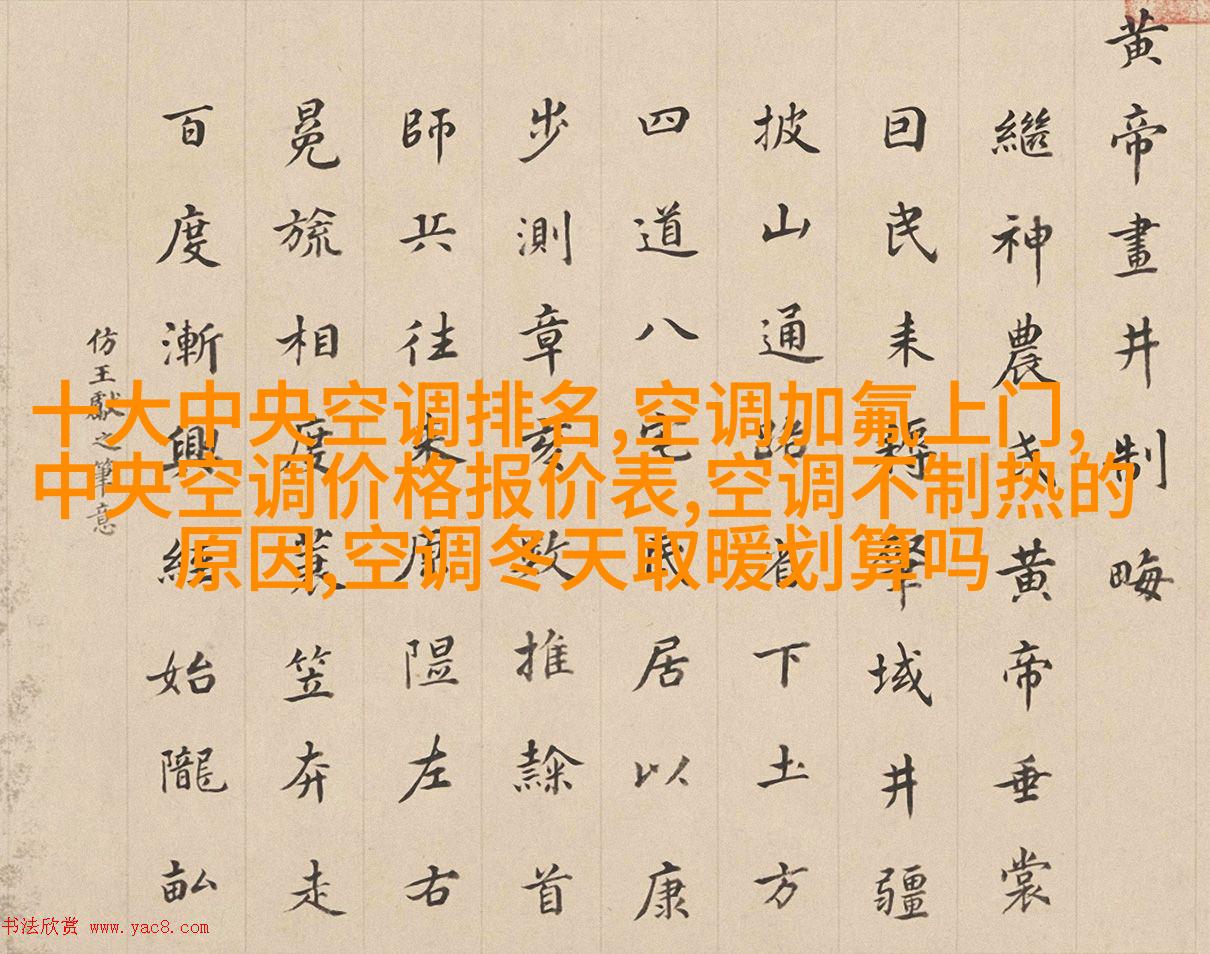 黄帝畫井制畮
繼神農氏黄帝垂裳
囙民耒耨肇域井疆
披山通路省下土方
四道八宅民居以康
步測章亥数推隸首
師兵往来原隰左右
冕旒相度蓑笠奔走
百度漸興經始隴畝
仿王獻之筆意
十大中央空调排名,空调加氟上门,
中央空调价格报价表,空调不制热的
原因,空调冬天取暖划算吗
书法欣赏 www.yac8.com